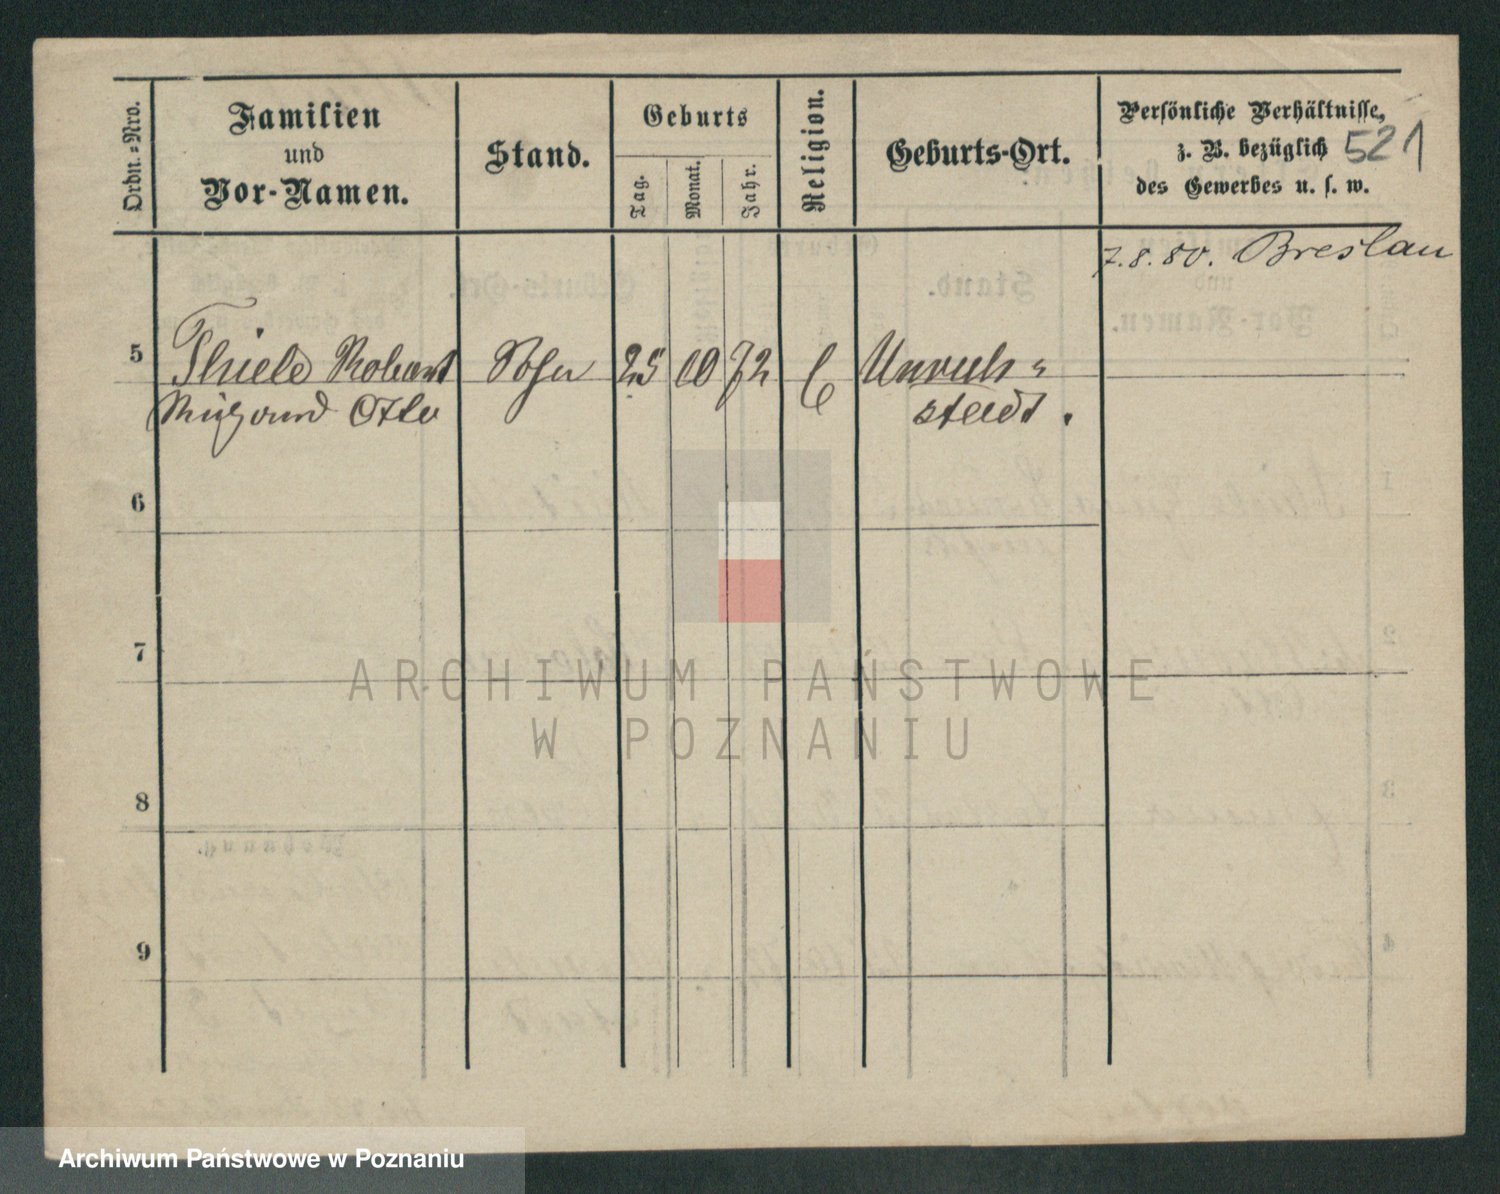 Ordn.-Nro.
Familien
und
Vor-Namen.
Stand.
Geburts
Tag.
Monat.
Jahr.
Religion.
Geburts-Ort.
Persönliche Verhältnisse,
z. B. bezüglich
des Gewerbes u. s. w.
521
7.8.80. Breslau
5 Thiele Robert Sohn 25 10 72 Unruh-
Otto stadt.
6
7
ARCHIWUM PAŃSTWOWE
W POZNANIU
8
9
Archiwum Państwowe w Poznaniu